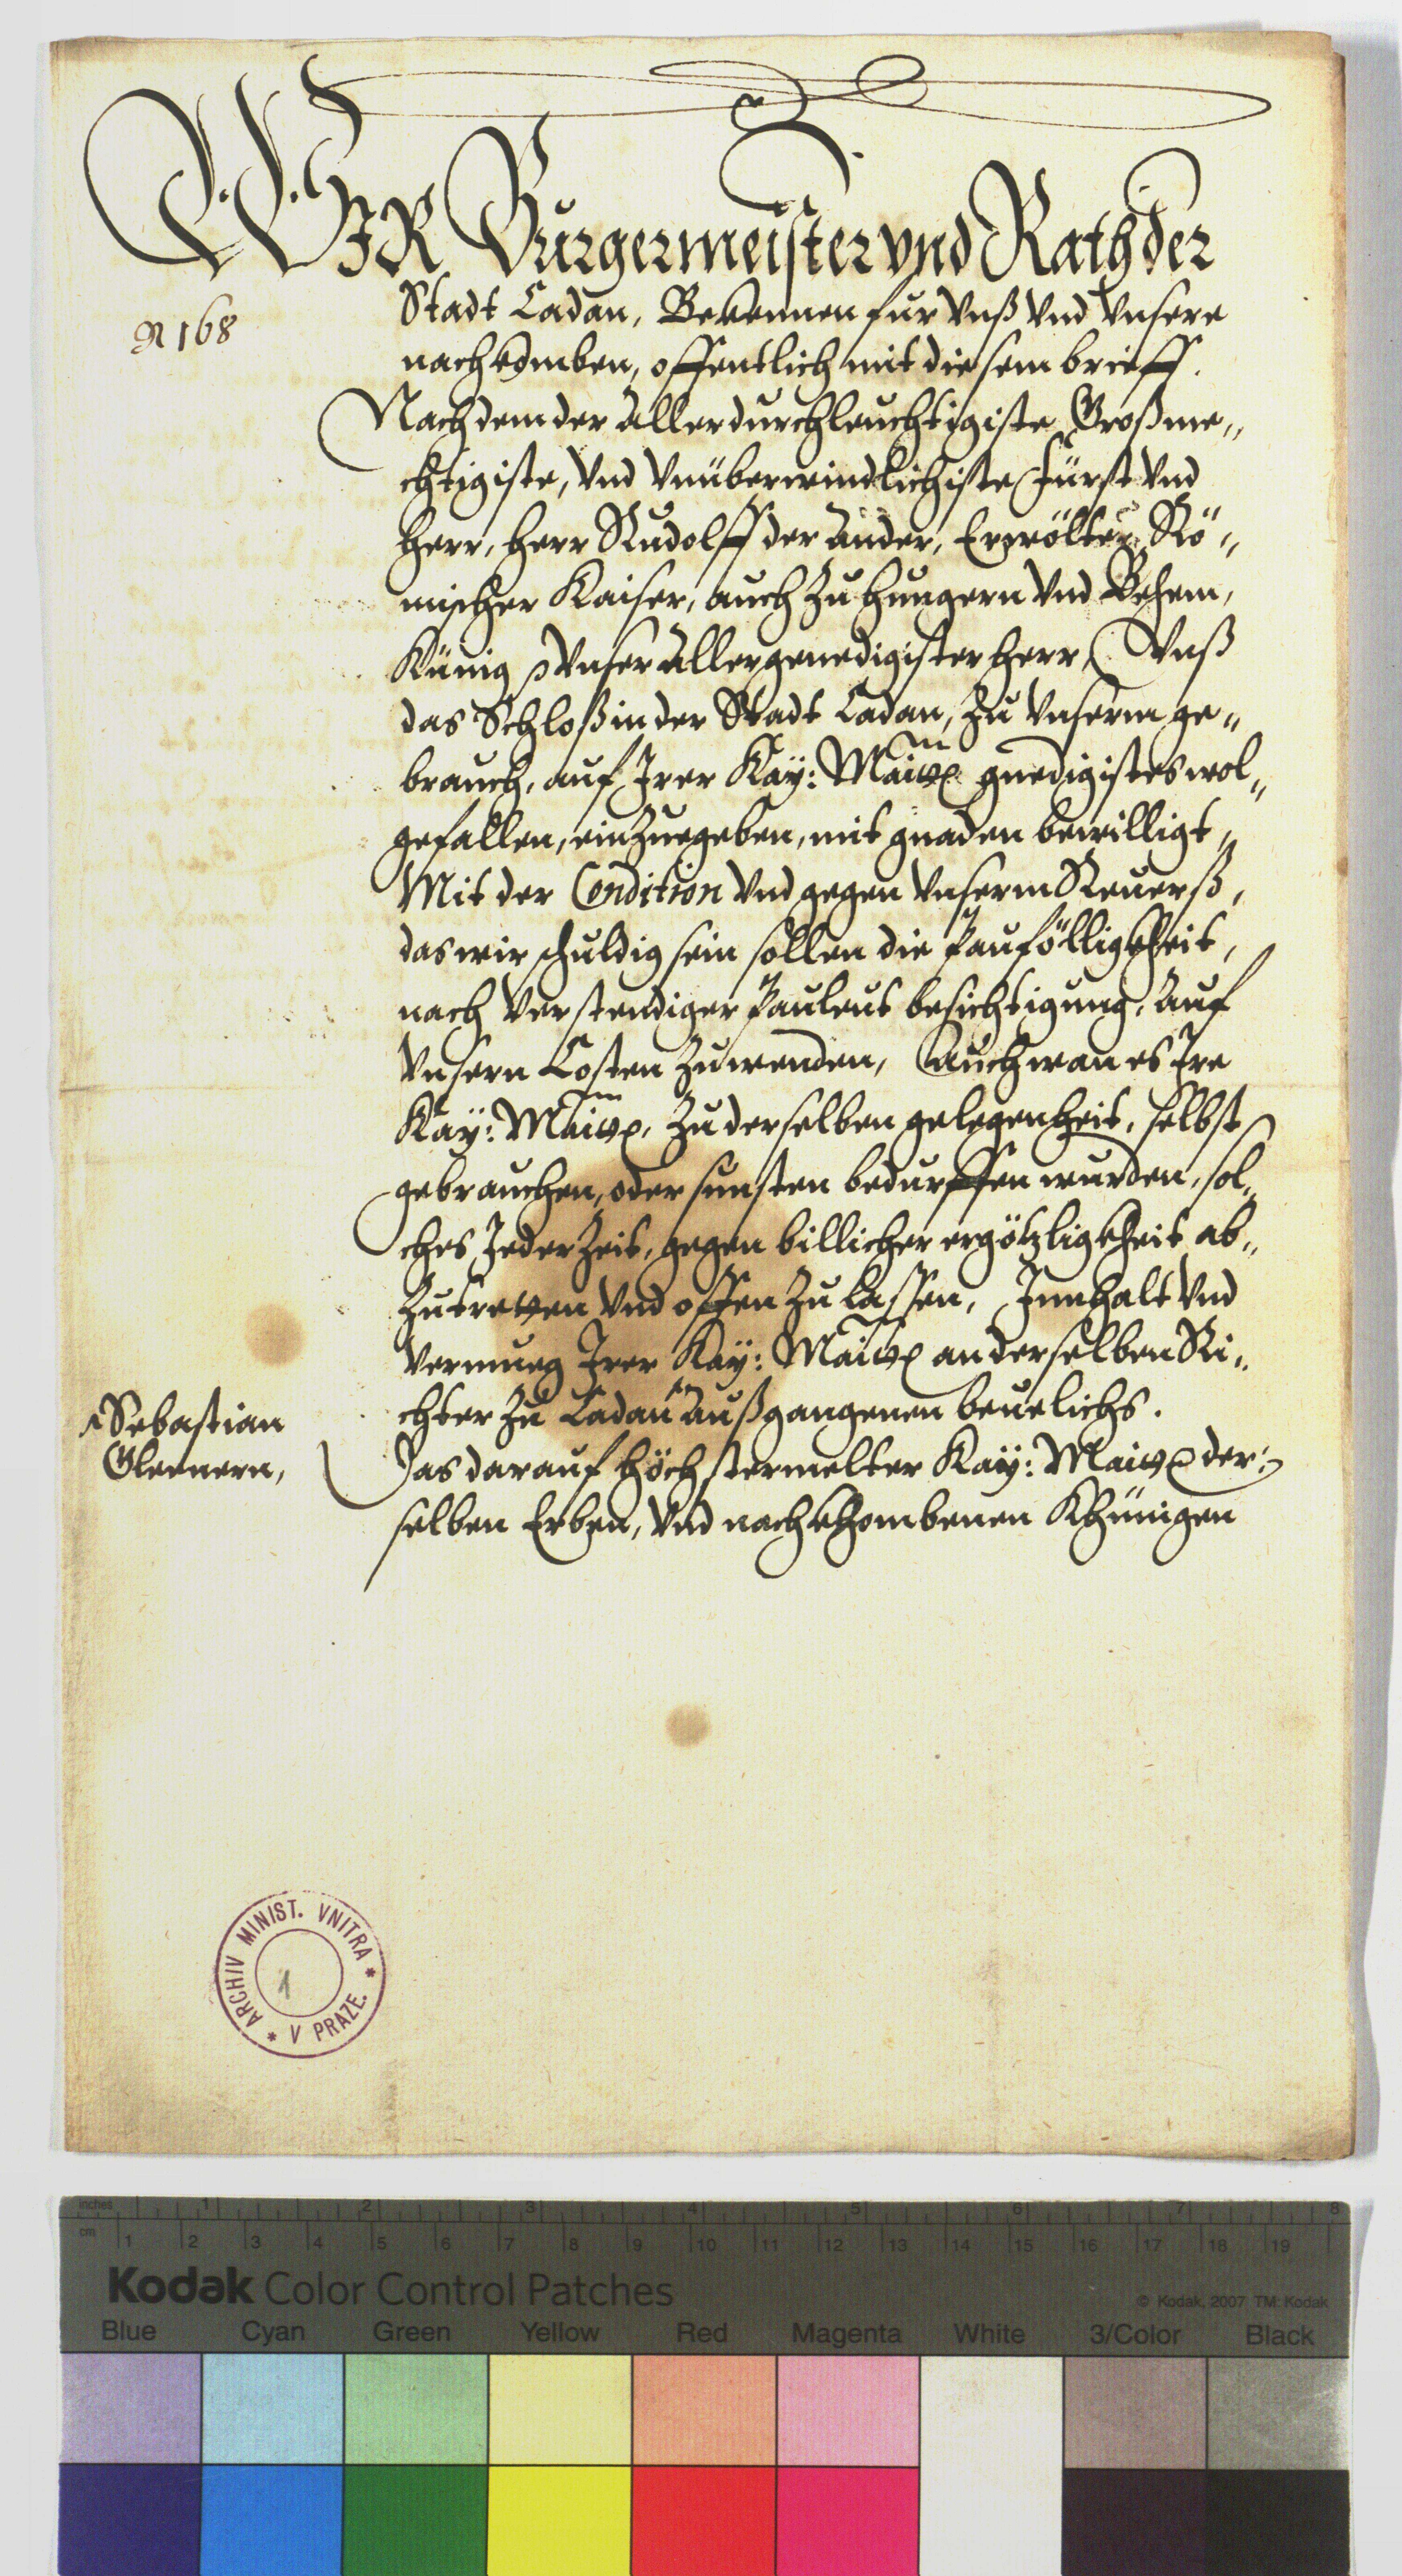 WIR Burgermeister vnd Rath der
N 168
Stadt Cadan, Bekennen fur Vnß Vnd Vnsere
nachkomben, offentlich mit diesem brieff.
Nachdem der Allerdurchleuchtigiste Großme„
chtigiste, Vnd Vnüberwindlichiste Fürst Vnd
Herr, Herr Rudolff der Ander, Erwölter Rö„
mischer Kaiser, auch Zu Hungern Vnd Behem,
Künig Vnser Allergenedigister Herr, Vnß
das Schloß in der Stadt Cadan, Zu Vnserm ge„
brauch, auf Irer Kaÿ: Maitt gnedigistes wol„
gefallen, einZuegeben, mit gnaden bewilligt,
Mit der Condition Vnd gegen Vnserm Reuerß,
das wir schuldig sein sollen die Paufölligkheit,
nach Verstendiger Pauleut besichtigung, Auf
Vnsern Costen Zuwenden, Auch wan es Ire
Kaÿ: Maitt, Zu derselben gelegenheit, selbst
gebrauchen, oder sunsten bedurffen wurden, sol„
ches JederZeit, gegen billicher ergötzligkheit ab„
Zutretten Vnd offen Zu lassen, Innhalt Vnd
Vermueg Irer Kaÿ: Maitt an derselben Ri„
chter Zu Cadan Außgangenen beuelichs.
Sebastian
Das darauf höchsternelter Kaÿ: Maitt der„
selben Erben, Vnd nachkhombenen Khünigen
ARCHIV MINIST. VNITRA * V PRAZE. *
1
inches 1 2 3 4 5 6 7 8
cm 1 2 3 4 5 6 7 8 9 10 11 12 13 14 15 16 17 18 19
Kodak Color Control Patches
© Kodak, 2007 TM: Kodak
Blue Cyan Green Yellow Red Magenta White 3/Color Black